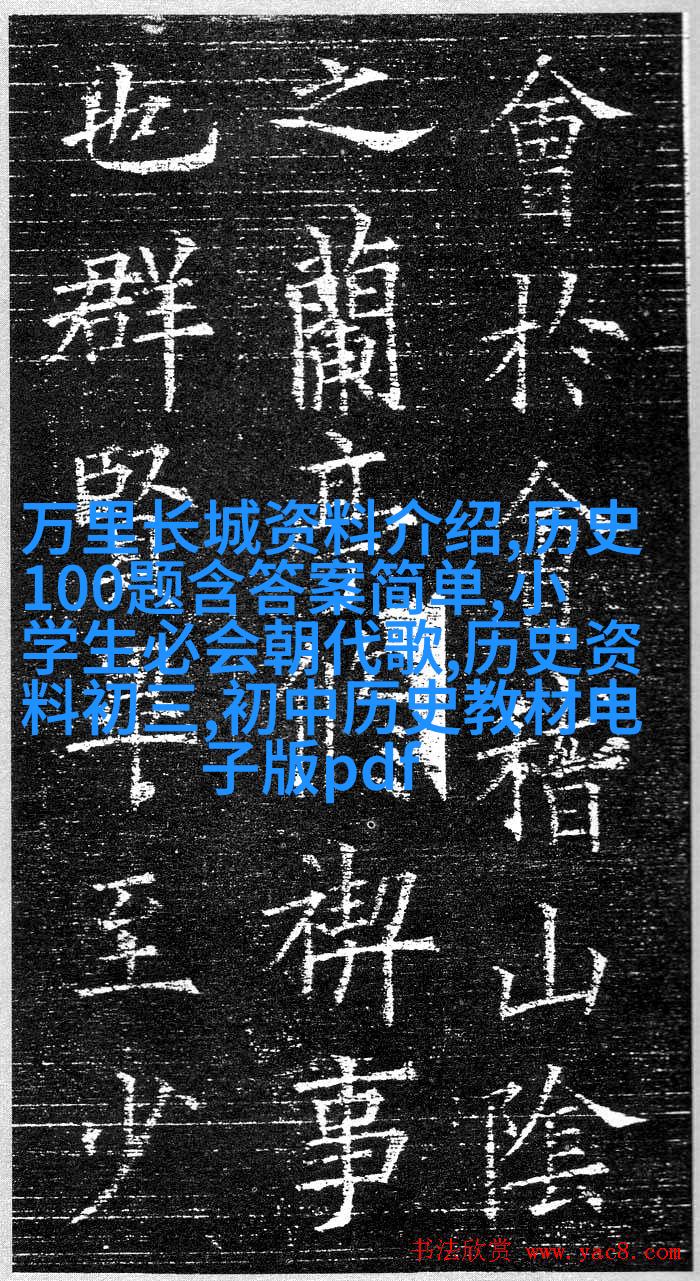 會於會稽山陰
之蘭亭禊事
也群賢畢至少
万里长城资料介绍,历史
100题含答案简单,小
学生必会朝代歌,历史资
料初三,初中历史教材电
子版pdf
书法欣赏 www.yac8.com